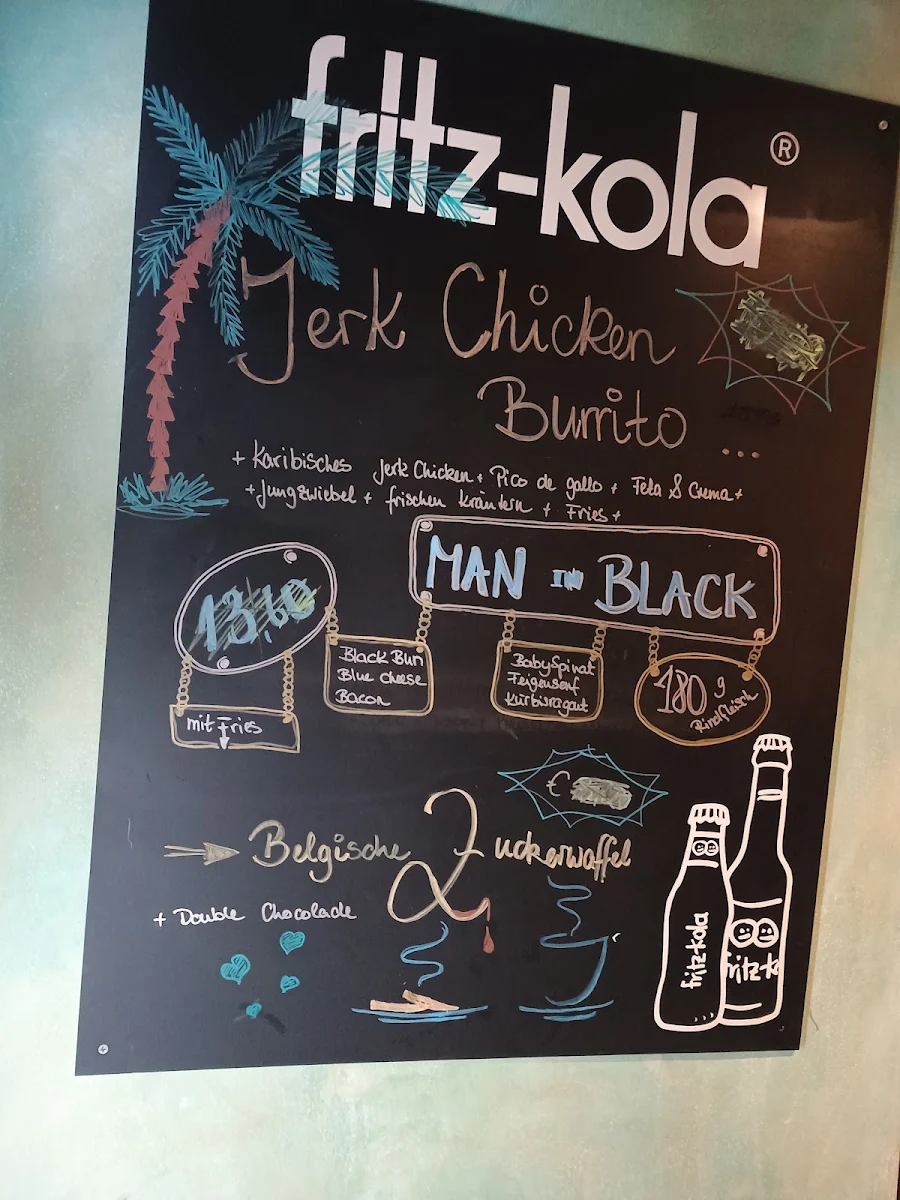 fritz-kola®
Jerk Chicken
Burrito ...
+ Karibisches Jerk Chicken + Pico de gallo + Feta & Crema +
+ Jungzwiebel + frischen Kräutern + Fries +
MAN IN BLACK
13,60
mit Fries
Black Bun
Blue cheese
Bacon
BabySpinat
Feigensenf
Kürbisragout
180 g
Rindfleisch
€
Belgische Zuckerwaffel
+ Double Chocolade
fritz-kola
fritz-k